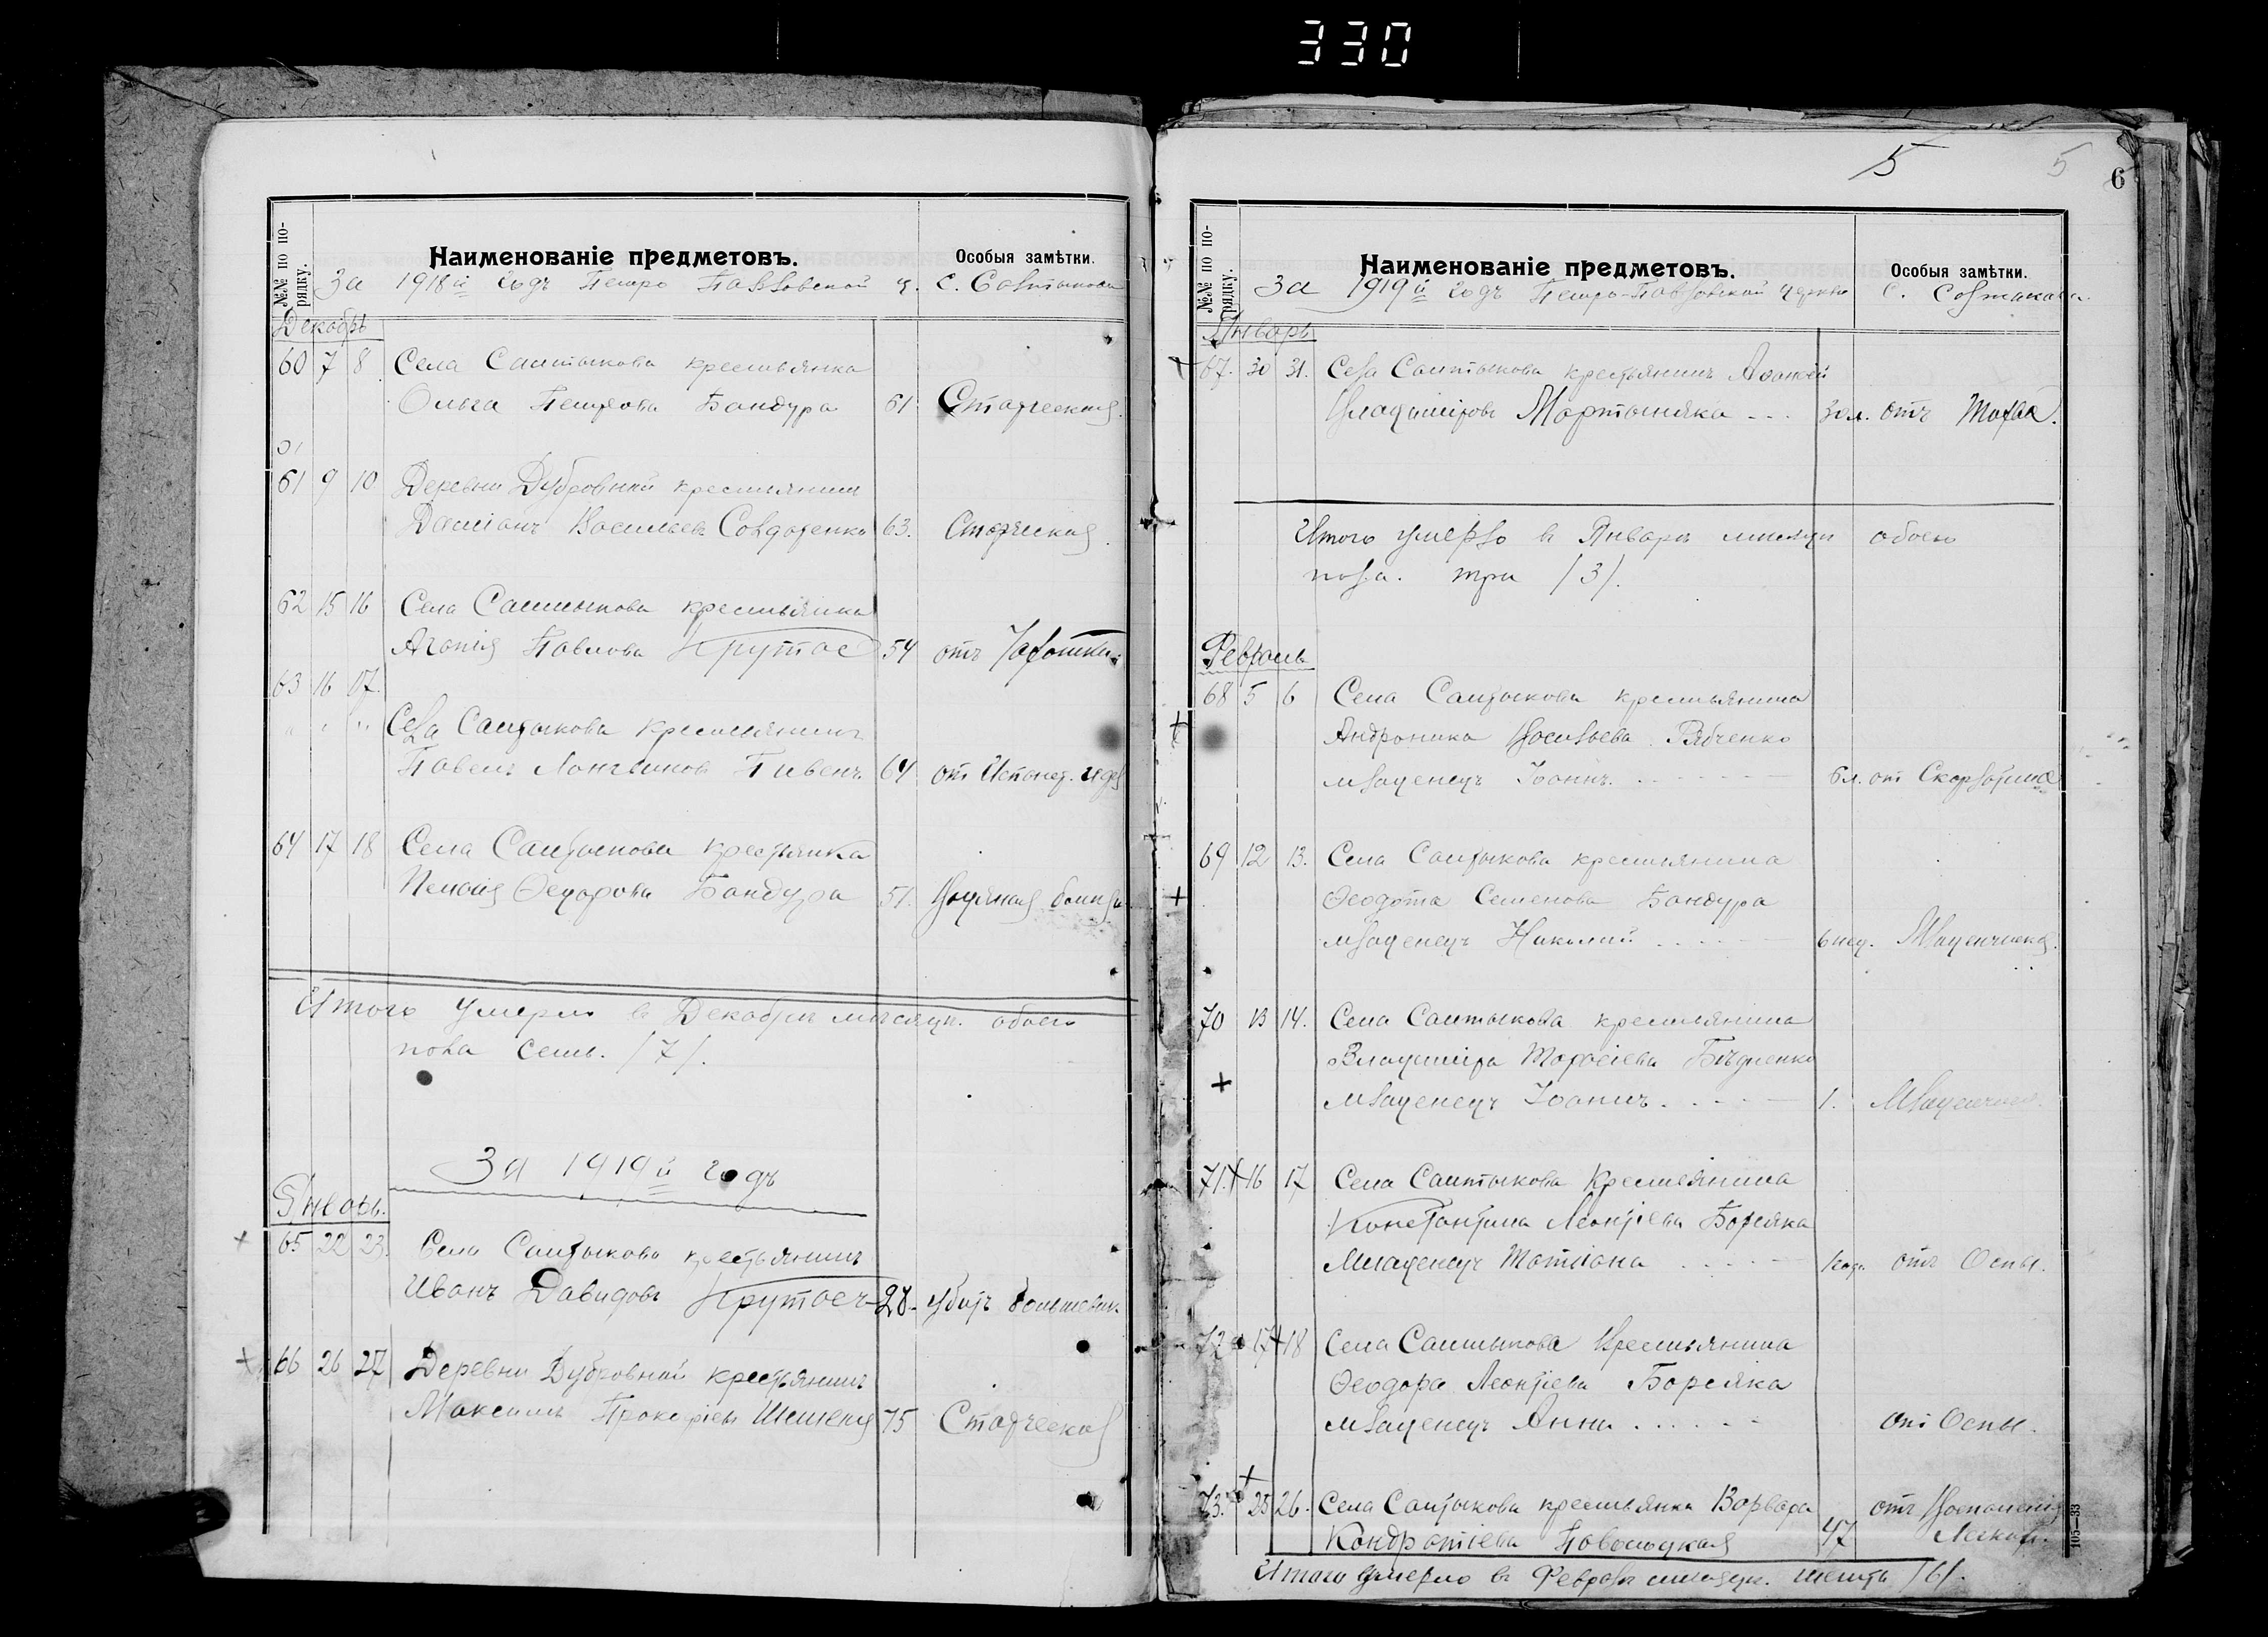 330
№№ по по-
рядку.
Наименованіе предметовъ.
Особыя замѣтки.
За 1918й годъ Петро Павловской ц. с. Солтыкова
Декабрь
60 7 8 Села Салтыкова крестьянка
Ольга Петрова Бандура 61. Старческая.
61 9 10 Деревни Дубровной крестьянинъ
Даміанъ Васильевъ Солдатенко 63. Старческая.
62 15 16 Села Салтыкова крестьянка
Агапія Павлова 54 отъ
63 16 17.
Села Салтыкова крестьянинъ
Павелъ Лонгиновъ Пивень 64 от
64 17 18 Села Салтыкова крестьянка
Ѳедорова Бандура 51. Водяная
Итого умерло въ Декабрѣ мѣсяцѣ обоего
пола семь. /7/.
За 1919й годъ
Январь.
65 22 23. Села Салтыкова крестьянинъ
Иванъ Давидовъ 28. убитъ большевик
66 26 27 Деревни Дубровной крестьянинъ
Максимъ Прокопіевъ 75 Старческая
5 5 6
№№ по по-
рядку.
Наименованіе предметовъ.
Особыя замѣтки.
За 1919й годъ Петро-Павловской церкви с. Солтыкова.
Январь
67. 30 31. Села Салтыкова крестьянинъ
Владиміровъ Мартыняка 30л. отъ Тифа.
Итого умерло въ Январѣ мѣсяцѣ обоего
пола. три /3/.
Февраль
68 5 6 Села Салтыкова крестьянина
Андроника Васильева Рябченко
младенецъ Іоаннъ. 6л. от Скарлатина
69 12 13. Села Салтыкова крестьянина
Ѳеодота Семенова Бандура
младенецъ Николай 6 нед. Младенческая.
70 13 14. Села Салтыкова крестьянина
Владиміра Тарасіева Бѣдненко
младенецъ Іоаннъ. 1. Младенческ.
71. 16 17 Села Салтыкова Крестьянина
Константина Леонтіева Бореяка
Младенецъ Татіана 1 год. отъ Оспы.
72 17 18 Села Салтыкова Крестьянина
Ѳеодора Леонтіева Бореяка
младенецъ Анна от Оспы.
73. 25 26. Села Салтыкова крестьянка Варвара отъ Воспаленія
Кондратіева Новосюцкая 47 Легкихъ.
Итого умерло въ Февралѣ мѣсяцѣ. шесть /6/.
105—33